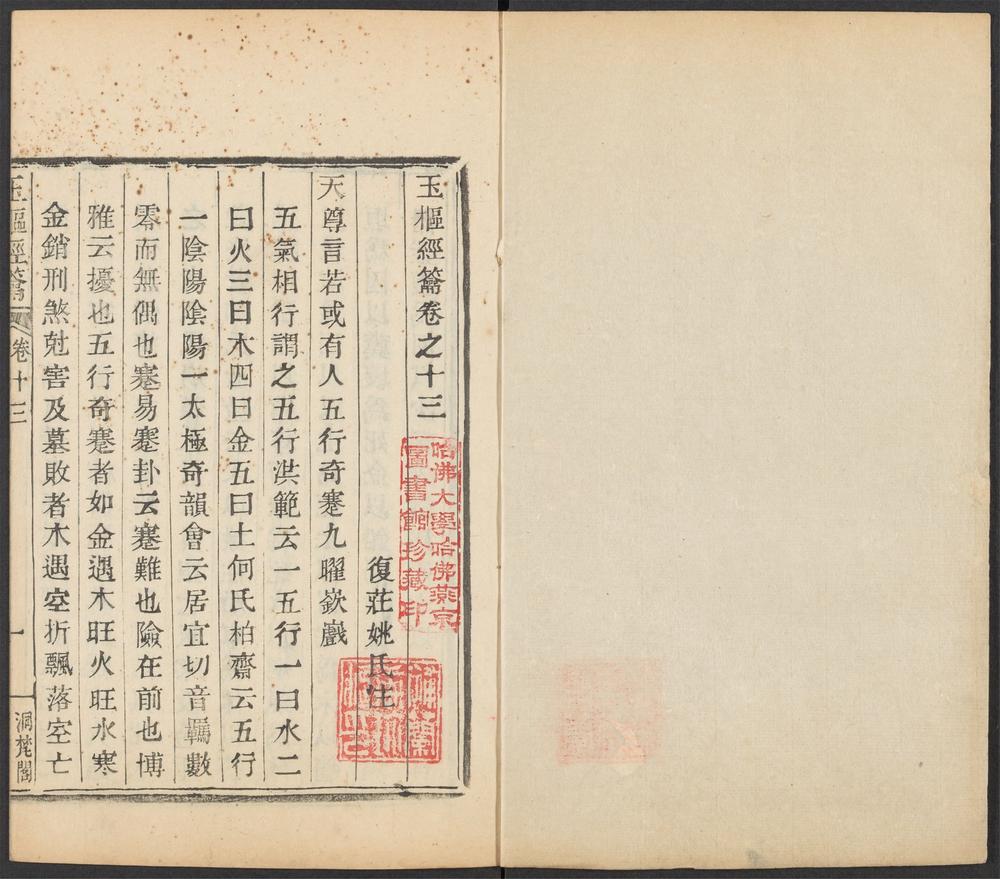 玉樞經籥卷之十三
復莊姚氏注
天尊言若或有人五行奇蹇九曜嶔巇
五氣相行謂之五行洪範云一五行一曰水二
曰火三曰木四曰金五曰土何氏柏齋云五行
一陰陽陰陽一太極奇韻會云居宜切音羈數
零而無偶也蹇易蹇卦云蹇難也險在前也博
雅云擾也五行奇蹇者如金遇木旺火旺水寒
金銷刑煞尅害及墓敗者木遇空折飄落空亡
玉樞經籥
卷十三
一
洞梵閣
哈佛大學哈佛燕京
圖書館珍藏印